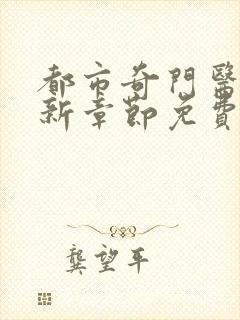 都市奇門醫
新章節免費
龔望平